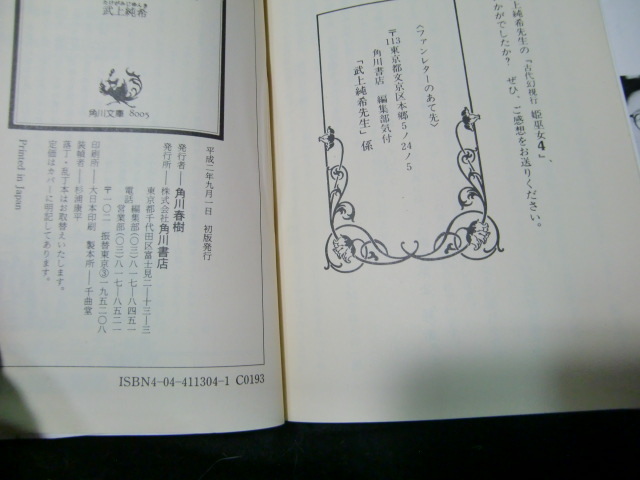 上純希先生の『古代幻視行 姫巫女4』、
かがでしたか? ぜひ、ご感想をお送りください。
〈ファンレターのあて先〉
〒113東京都文京区本郷5ノ24ノ5
角川書店 編集部気付
「武上純希先生」係
たけがみじゅんき
武上純希
角川文庫 8005
平成二年九月一日 初版発行
発行者——角川春樹
発行所——株式会社角川書店
東京都千代田区富士見二—十三—三
電話 編集部(〇三)八一七—八四五一
営業部(〇三)八一七—八五二一
〒一〇二 振替東京③一九五二〇八
印刷所——大日本印刷 製本所——千曲堂
装幀者——杉浦康平
落丁・乱丁本はお取替えいたします。
定価はカバーに明記してあります。
Printed in Japan
ISBN4-04-411304-1 C0193